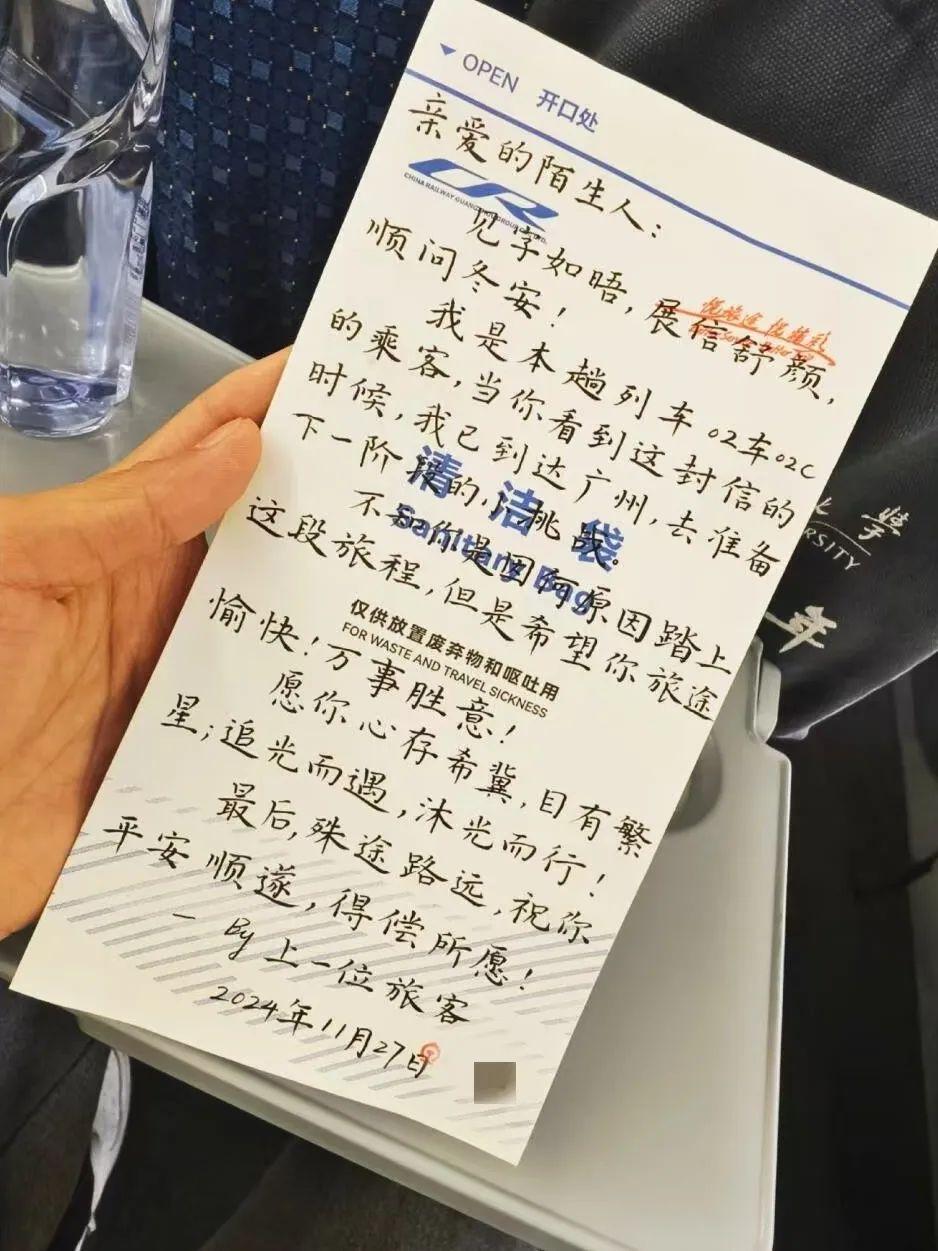 OPEN 开口处
亲爱的陌生人：
CHINA RAILWAY GUANGZHOU GROUP CO., LTD.
见字如晤，展信舒颜，
顺问冬安！
我是本趟列车02车02C
的乘客，当你看到这封信的
时候，我已到达广州，去准备
下一阶段的，挑战。
清洁袋
Sanitary Bag
不知你是因何原因踏上
这段旅程，但是希望你旅途
愉快！万事胜意！
仅供放置废弃物和呕吐用
FOR WASTE AND TRAVEL SICKNESS
愿你心存希冀，目有繁
星；追光而遇，沐光而行！
最后，殊途路远，祝你
平安顺遂，得偿所愿！
— By 上一位旅客
2024年11月27日
大学
ERSITY